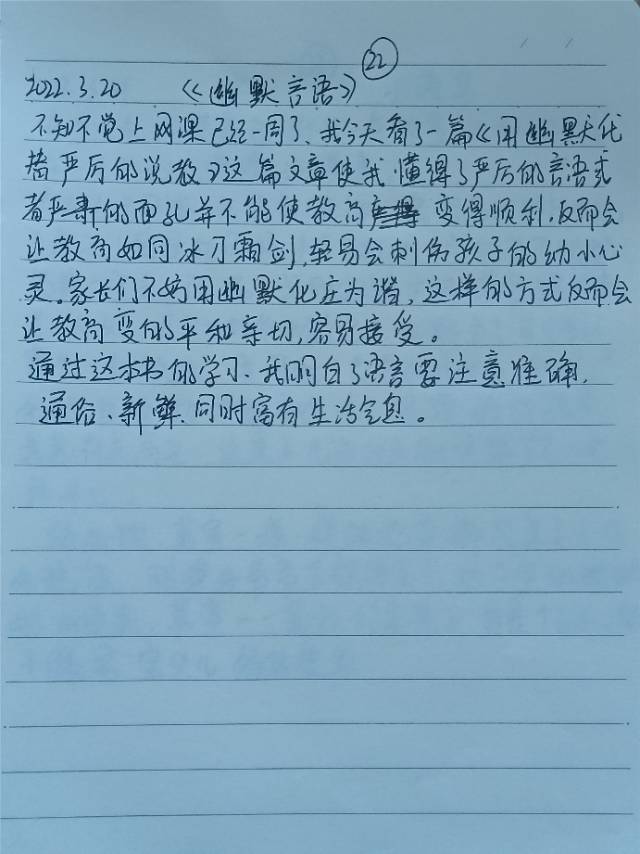 22
2022.3.20 《幽默言语》
不知不觉上网课已经一周了、我今天看了一篇《用幽默代
替严厉的说教》这篇文章使我懂得了严厉的言语或
者严肃的面孔并不能使教育变得顺利,反而会
让教育如同冰刀霜剑,轻易会刺伤孩子的幼小心
灵。家长们不妨用幽默化庄为谐,这样的方式反而会
让教育变的平和亲切,容易接受。
通过这本书的学习、我明白了语言要注意准确、
通俗、新鲜、同时富有生活气息。